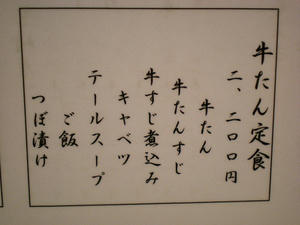 牛たん定食
二、二〇〇円
牛たん
牛たんすじ
牛すじ煮込み
キャベツ
テールスープ
ご飯
つぼ漬け